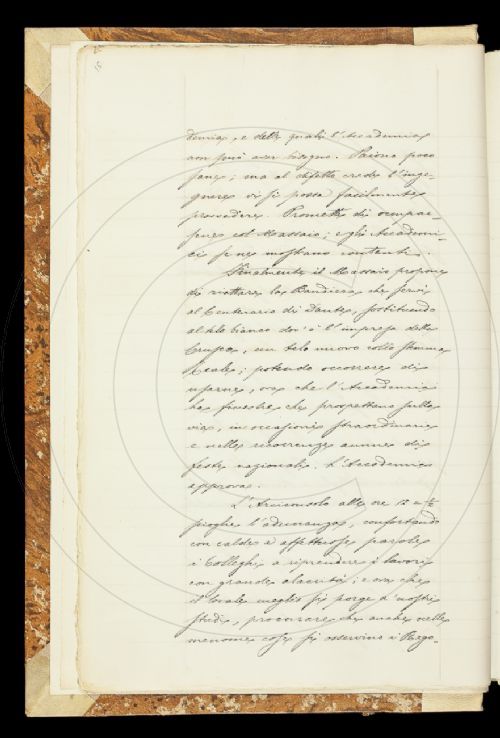 demia, e delle quali l'Accademia
non può aver bisogno. Saranno poco
sane; ma al difetto crede l'inge-
gnere vi si possa facilmente
provvedere. Promette di occupar-
sene col Massaio; e gli Accademi-
ci se ne mostrano contenti.
Finalmente il Massaio propone
di riattare la Bandiera che servì
al Centenario di Dante, sostituendo
al telo bianco dov'è l'impresa della
Crusca, un telo nuovo collo stemma
Reale; potendo occorrere di
usarne, ora che l'Accademia
ha finestre che prospettano sulla
via, in occasioni straordinarie
e nelle ricorrenze annue di
feste nazionali. L'Accademia
approva.
L'Arciconsolo alle ore 12 e ½
scioglie l'adunanza, confortando
con calde e affettuose parole
i Colleghi a riprendere i lavori
con grande alacrità; e ora che
il locale meglio si porge a' nostri
studi, procurare che anche nelle
menome cose si osservino i Rego-